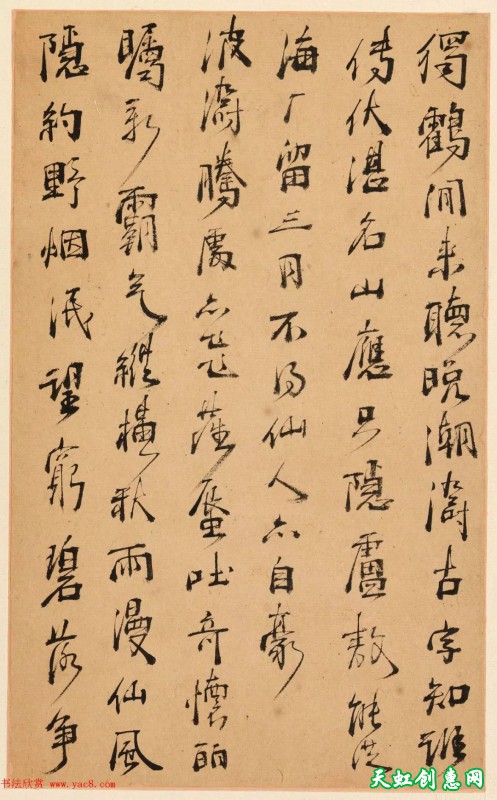 獨鶴閒來聽晚潮濤古字知誰
傳伏湛名山應只隱盧敖能淹
海厂留三月不得仙人亦自豪
波濤騰處亦蓬蜃吐奇懷酾
矚影霸气縱橫秋雨漫仙風
隱約野烟泯望窮碧落争
书法欣赏 www.yac8.com
天虹创意网